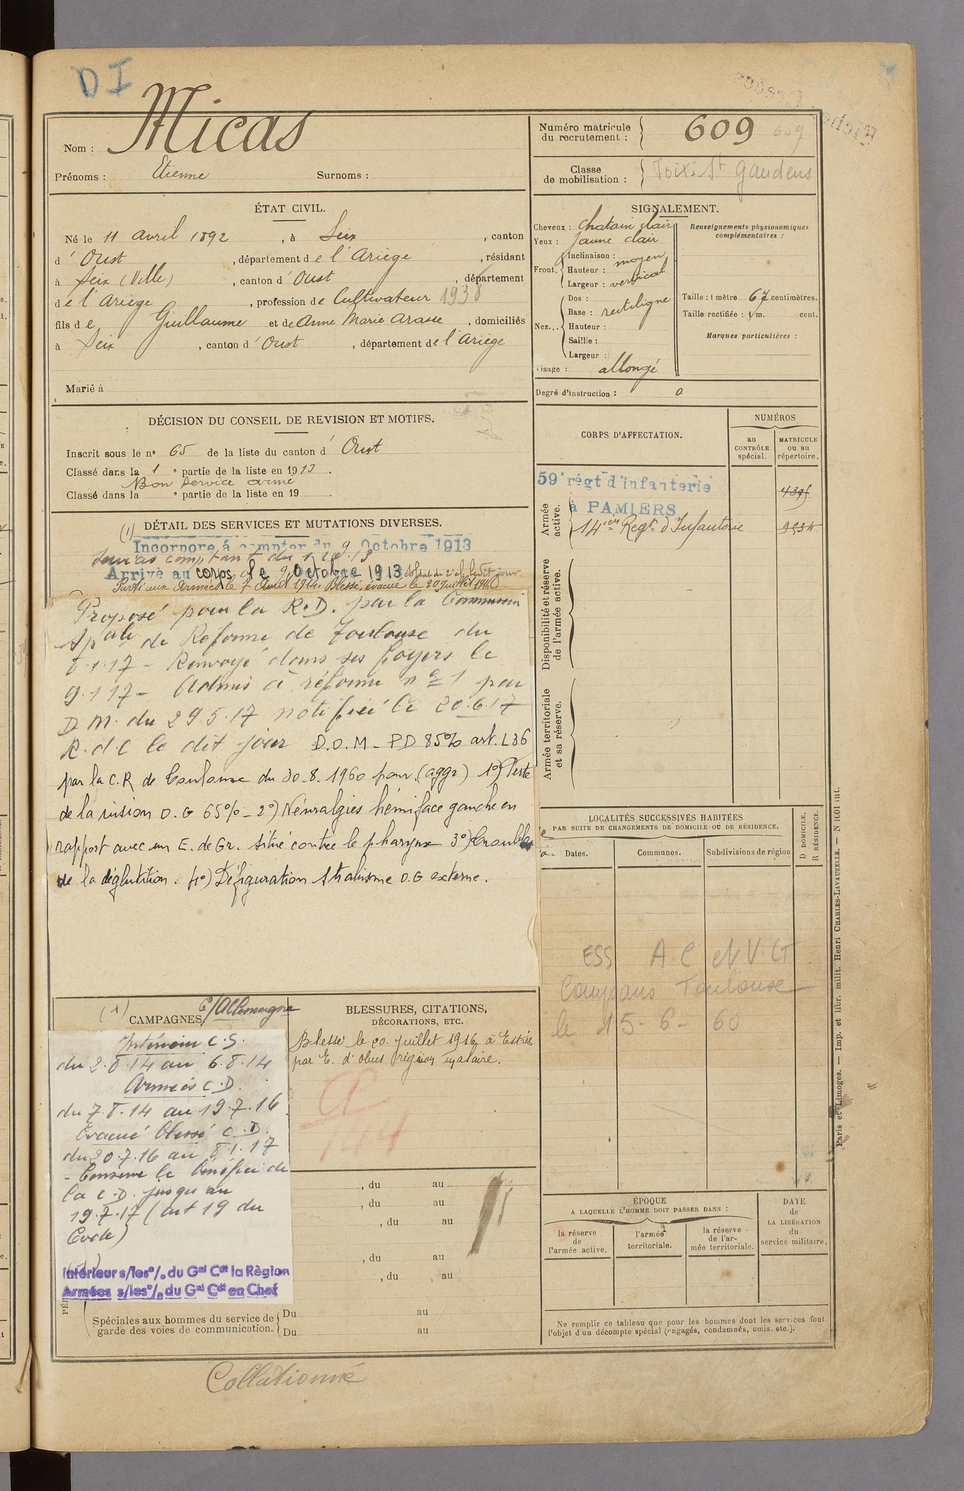 DI
Nom : Micas
Prénoms : Etienne Surnoms :
Numéro matricule du recrutement : 609 609
Classe de mobilisation : Foix St Gaudens
ÉTAT CIVIL.
Né le 11 avril 1892, à Seix, canton
d'Oust, département de l'Ariège, résidant
à Seix (Ville), canton d'Oust, département
de l'Ariège, profession de Cultivateur 1938
fils de Guillaume et de Anne Marie Arasse, domiciliés
à Seix, canton d'Oust, département de l'Ariège
Marié à
SIGNALEMENT.
Cheveux : chatain clair
Yeux : jaune clair
Front. Inclinaison : moyen
Hauteur :
Largeur : vertical
Nez... Dos :
Base : rectiligne
Hauteur :
Saillie :
Largeur :
Visage : allongé
Renseignements physionomiques complémentaires :
Taille : 1 mètre 67 centimètres.
Taille rectifiée : 1 m. cent.
Marques particulières :
Degré d'instruction :
DÉCISION DU CONSEIL DE REVISION ET MOTIFS.
Inscrit sous le n° 65 de la liste du canton d'Oust
Classé dans la 1e partie de la liste en 1913.
Bon service armé
Classé dans la e partie de la liste en 19
CORPS D'AFFECTATION.
NUMÉROS
AU CONTRÔLE spécial.
MATRICULE OU AU répertoire.
Armée active.
59e régt d'infanterie
à PAMIERS
14ième Régt d'Infanterie
Disponibilité et réserve de l'armée active.
Armée territoriale et sa réserve.
(1) DÉTAIL DES SERVICES ET MUTATIONS DIVERSES.
Incorporé à compter du 9 Octobre 1913
Arrivé au corps le 9 octobre 1913
Parti aux Armées le 7 août 1914. Blessé, évacué le 20 juillet 1916
Proposé pour la R.D. par la Commission
Spale de Réforme de Toulouse du
8.1.17 - Renvoyé dans ses foyers le
9.1.17 - Admis à réforme n° 1 par
D.M. du 29.5.17 notifiée le 20.6.17
R.d.C le dit jour D.O.M - P.D 85% art. L36
par la C.R de Toulouse du 30-8-1960 pour (aggr) 1°) Perte
de la vision O.G 65% - 2°) Névralgies hémiface gauche en
rapport avec un E. de Gr. situé contre le pharynx 3°) Troubles
de la déglutition. 4°) Défiguration Strabisme O.G externe.
LOCALITÉS SUCCESSIVES HABITÉES
PAR SUITE DE CHANGEMENTS DE DOMICILE OU DE RÉSIDENCE.
Dates.
Communes.
Subdivisions de région
D DOMICILE.
R RÉSIDENCE.
ESS A.C et V.G
Compans Toulouse
le 15-6-60
(1) CAMPAGNES
C/ Allemagne
Intérieur C.S.
du 2.8.14 au 6.8.14
Armées C.D.
du 7.8.14 au 19.7.16
Evacué blessé C.D.
du 20.7.16 au 8.1.17
- Conserve le bénéfice de
la C.D. jusqu'au
19.7.17 (art 19 du
Code)
Intérieur s/les %. du Gal Cdt la Région
Armées s/les %. du Gal Cdt en Chef
BLESSURES, CITATIONS,
DÉCORATIONS, ETC.
Blessé le 20 juillet 1916 à Estrées
par E. d'obus région malaire.
, du au
, du au
, du au
, du au
, du au
Spéciales aux hommes du service de garde des voies de communication.
Du au
Du au
ÉPOQUE
A LAQUELLE L'HOMME DOIT PASSER DANS :
la réserve de l'armée active.
l'armée territoriale.
la réserve de l'armée territoriale.
DATE de LA LIBÉRATION du service militaire.
Ne remplir ce tableau que pour les hommes dont les services font
l'objet d'un décompte spécial (engagés, condamnés, omis, etc.).
Paris et Limoges. — Imp. et libr. milit. Henri CHARLES-LAVAUZELLE.
Collationné